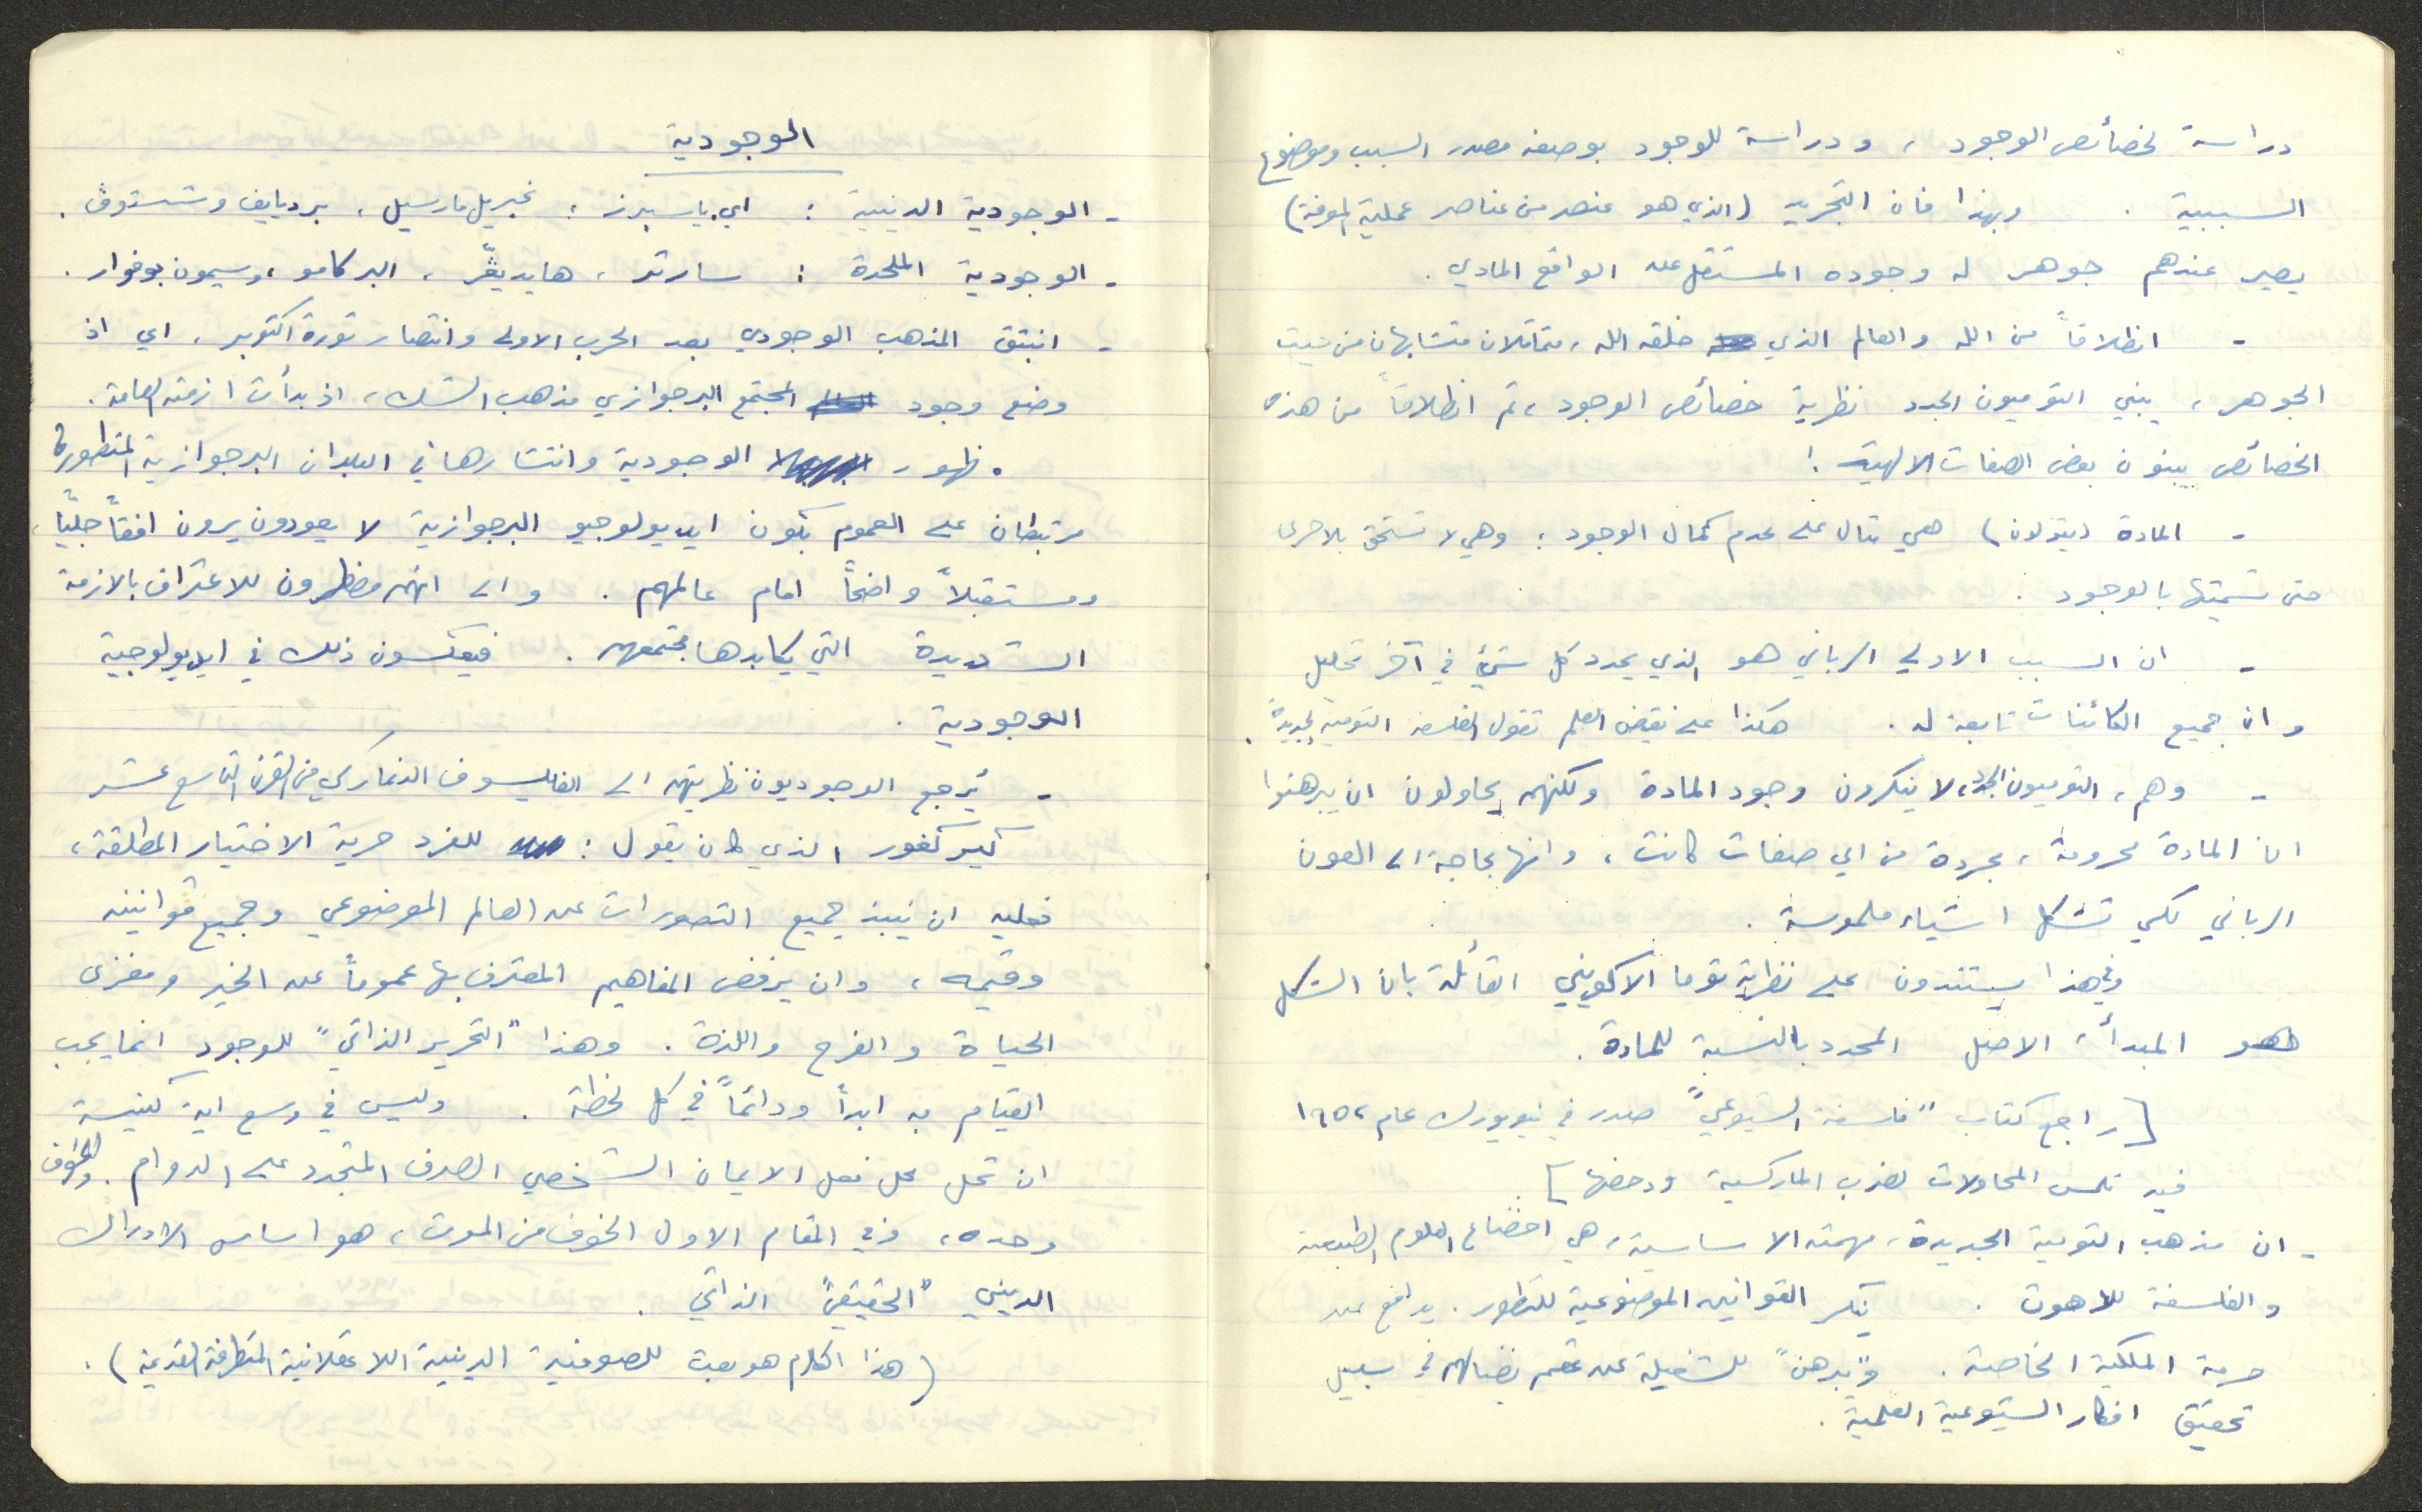 دراسة لخصائص الوجود ، ودراسة للوجود بوصفه مصدر السبب وموضوع
السببية . وبهذا فان التجريد (الذي هو عنصر من عناصر عملية المعرفة)
يصير عندهم جوهر له وجوده المستقل عن الواقع المادي .
- انطلاقاً من الله والعالم الذي خلقه الله ، متماثلان متشابهان من حيث
الجوهر ، يبني التوميون الجدد نظرية خصائص الوجود ، ثم انطلاقاً من هذه
الخصائص يبنون بعض الصفات الالهية !
- المادة (يقولون) هي مثال على عدم كمال الوجود ؛ وهي لا تستحق بالاحرى
حتى تسميتها بالوجود .
- ان السبب الاولي الرباني هو الذي يحدد كل شيئ في آخر تحليل
وان جميع الكائنات تابعة له . هكذا على نقيض العلم تقول الفلسفة التومية الجديدة .
- وهم ، التوميون الجدد ، لا ينكرون وجود المادة ولكنهم يحاولون ان يبرهنوا
ان المادة محرومة ، مجردة من اي صفات كانت ، وانها بحاجة الى العون
الرباني لكي تشكل اشياء ملموسة .
وفي هذا يستندون على نظرية توما الاكويني القائلة بان الشكل
هو المبدأ ، الاصل المحدد بالنسبة للمادة .
[راجع كتاب "فلسفة الشيوعي" صدر في نيويورك عام ١٩٥٢
فيه تلمس المحاولات لضرب الماركسية ودحضها]
- ان مذهب التومية الجديدة ، مهمته الاساسية ، هي اخضاع العلوم الطبيعية
والفلسفة للاهوت . ينكر القوانين الموضوعية للتطور . يدافع عن
حرمة الملكية الخاصة . و"يبرهن" للشغيلة عن عقم نضالهم في سبيل
تحقيق افكار الشيوعية العلمية .
الوجودية
- الوجودية الدينية : اي ياسبرز ؛ غبريل مارسيل ، برديايف وشستوف .
- الوجودية الملحدة : سارتر ، هايديغّر ، البر كامو ، وسيمون بوفوار .
- انبثق المذهب الوجودي بعد الحرب الاولى وانتصار ثورة اكتوبر . اي اذ
وضع وجود المجتمع البرجوازي مذهب الشك ، اذ بدأت ازمته العامة .
. ظهور الوجودية وانتشارها في البلدان البرجوازية المتطورة
مرتبطان على العموم بكون ايديولوجيو البرجوازية لا يعودون يرون افقاً جلياً ،
ومستقبلاً واضحاً امام عالمهم . والى انهم مضطرون للاعتراف بالازمة
الشديدة التي يكابدها مجتمعهم . فيعكسون ذلك في ايديولوجية
الوجودية .
- يُرجع الوجوديون نظريتهم الى الفايلسوف الدنماركي من القرن التاسع عشر
كيركغور الذي كان يقول : للفرد حرية الاختيار المطلقة ،
فعليه ان ينبذ جميع التصورات عن العالم الموضوعي وجميع قوانينه
وقيمه ، وان يرفض المفاهيم المعترف بها عموماً عن الخير ومغزى
الحياة والفرح واللذة . وهذا "التحرير الذاتي" للوجود انما يجب
القيام به ابداً ودائماً في كل لحظة . وليس في وسع اية كنيسة
ان تحل محل فعل الايمان الشخصي الصرف المتجدد على الدوام . والخوف
وحده ، وفي المقام الاول الخوف من الموت ، هو اساس الادراك
الديني "الحقيقي" الذاتي .
(هذا الكلام هو بعث للصوفية الدينية اللاعقلانية المتطرفة القديمة) .